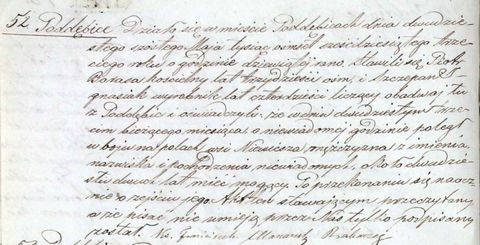 52. Poddębice Działo się w mieście Poddębicach dnia dwudzie-
stego szóstego Maja tysiąc ośmset sześćdziesiątego trze-
ciego roku o godzinie dziewiątej rano. Stawili się, Piotr
Barasa lat trzydzieści ośm, i Szczepan I-
gnasiak wyrobnik lat czterdzieści liczący obadwaj tu
z Poddębic i oświadczyli, że w dniu dwudziestym trze-
cim bieżącego miesiąca, o niewiadomej godzinie poległ
w boju na polach wsi mężczyzna z imienia,
nazwiska i pochodzenia niewiadomych, około dwadzie-
ścia dwóch lat mieć mogący. Po przekonaniu się naocz-
nie o zejściu jego Akt ten stawającym przeczytany,
a że pisać nie umieją przez Nas tylko podpisany
został.
53